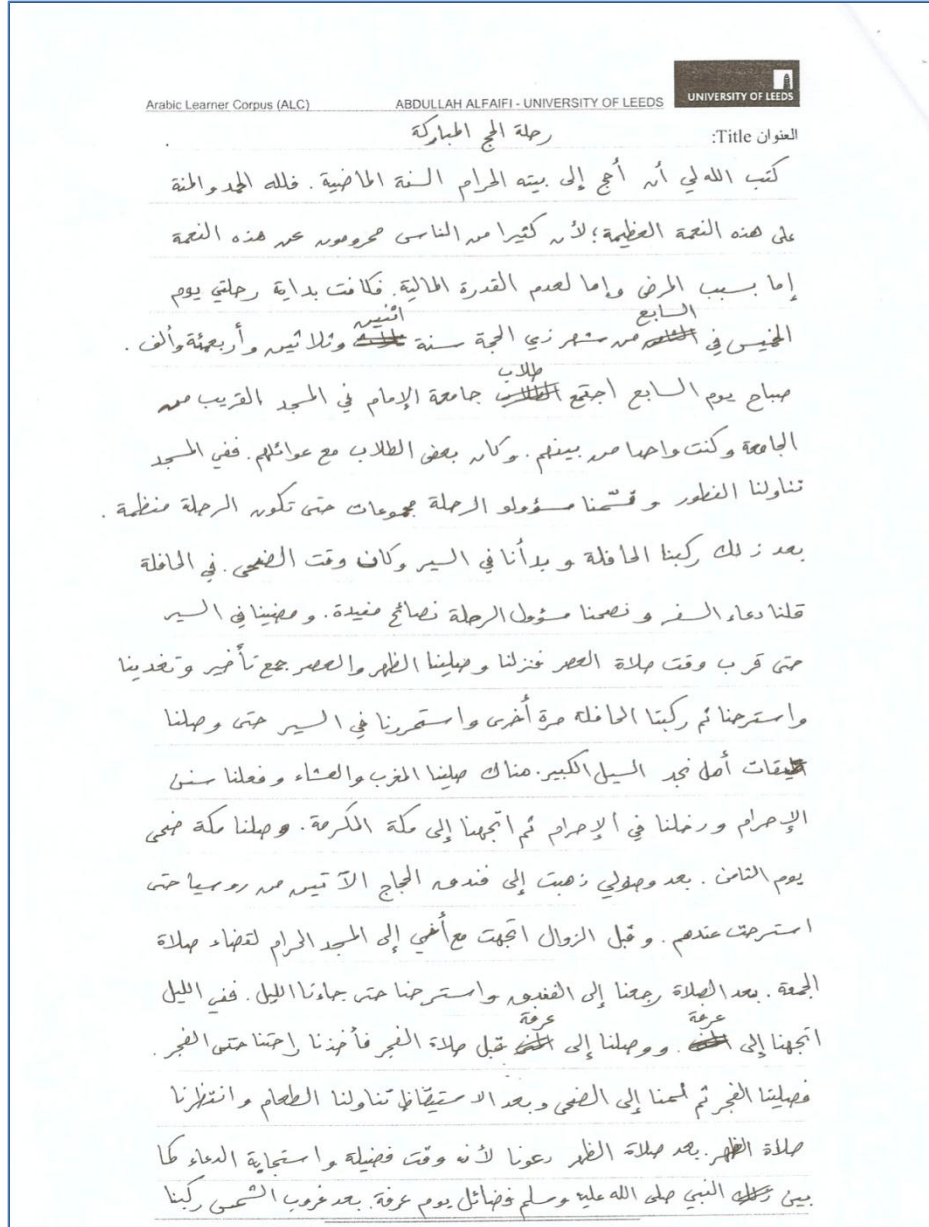 UNIVERSITY OF LEEDS
Arabic Learner Corpus (ALC) ABDULLAH ALFAIFI - UNIVERSITY OF LEEDS
العنوان Title: رحلة الحج المباركة
كتب الله لي أن أحج إلى بيته الحرام السنة الماضية. فلله الحمد والمنة
على هذه النعمة العظيمة؛ لأن كثيرا من الناس محرومون عن هذه النعمة
إما بسبب المرض وإما لعدم القدرة المالية. فكانت بداية رحلتي يوم
الخميس في السابع من شهر ذي الحجة سنة اثنين وثلاثين وأربعمئة وألف.
صباح يوم السابع اجتمع طلاب جامعة الإمام في المسجد القريب من
الجامعة وكنت واحدا من بينهم. وكان بعض الطلاب مع عوائلهم. ففي المسجد
تناولنا الفطور وقسّمنا مسؤولو الرحلة مجموعات حتى تكون الرحلة منظمة.
بعد ذلك ركبنا الحافلة وبدأنا في السير وكان وقت الضحى. في الحافلة
قلنا دعاء السفر ونصحنا مسؤول الرحلة نصائح مفيدة. ومضينا في السير
حتى قرب وقت صلاة العصر فنزلنا وصلينا الظهر والعصر جمع تأخير وتغدينا
واسترحنا ثم ركبنا الحافلة مرة أخرى واستمررنا في السير حتى وصلنا
ميقات أهل نجد السيل الكبير. هناك صلينا المغرب والعشاء وفعلنا سنن
الإحرام ودخلنا في الإحرام ثم اتجهنا إلى مكة المكرمة. وصلنا مكة ضحى
يوم الثامن. بعد وصولي ذهبت إلى فندق الحجاج الآتين من روسيا حتى
استرحت عندهم. وقبل الزوال اتجهت مع أخي إلى المسجد الحرام لقضاء صلاة
الجمعة. بعد الصلاة رجعنا إلى الفندق واسترحنا حتى جاءنا الليل. ففي الليل
اتجهنا إلى عرفة. ووصلنا إلى عرفة قبل صلاة الفجر فأخذنا راحتنا حتى الفجر.
فصلينا الفجر ثم نمنا إلى الضحى وبعد الاستيقاظ تناولنا الطعام وانتظرنا
صلاة الظهر. بعد صلاة الظهر دعونا لأنه وقت فضيلة واستجابة الدعاء كما
بين النبي صلى الله عليه وسلم فضائل يوم عرفة. بعد غروب الشمس ركبنا